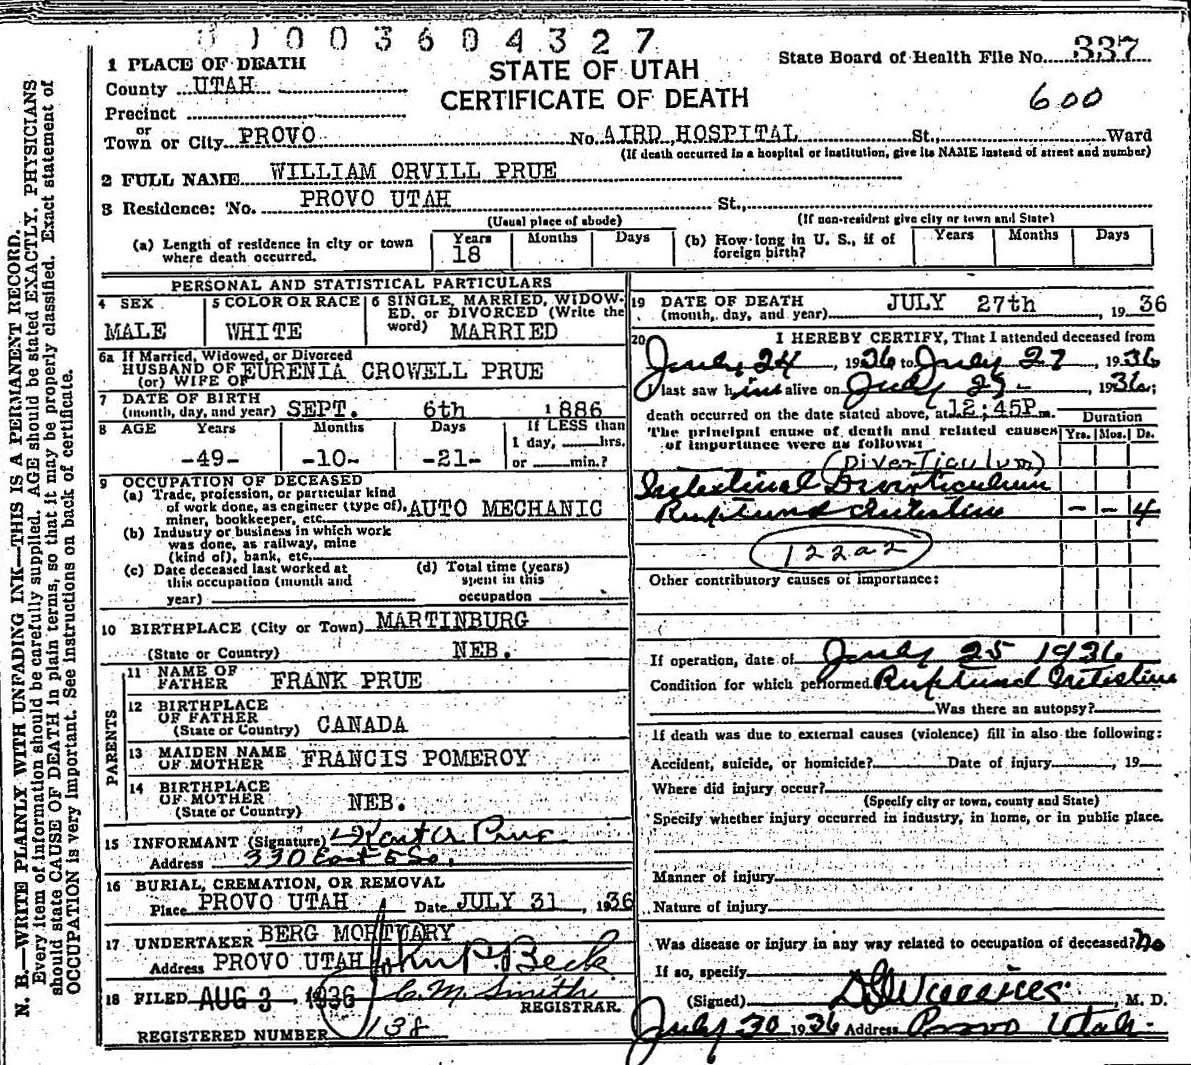 0 1 0 0 3 6 0 4 3 2 7
STATE OF UTAH
CERTIFICATE OF DEATH
State Board of Health File No. 337
600
1 PLACE OF DEATH
County UTAH
Precinct
or
Town or City PROVO No. AIRD HOSPITAL St., Ward
(If death occurred in a hospital or institution, give its NAME instead of street and number)
2 FULL NAME WILLIAM ORVILL PRUE
3 Residence: No. PROVO UTAH St.,
(Usual place of abode) (If non-resident give city or town and State)
(a) Length of residence in city or town where death occurred. Years 18 Months Days
(b) How long in U. S., if of foreign birth? Years Months Days
PERSONAL AND STATISTICAL PARTICULARS
4 SEX
MALE
5 COLOR OR RACE
WHITE
6 SINGLE, MARRIED, WIDOW-
ED, or DIVORCED (Write the
word) MARRIED
6a If Married, Widowed, or Divorced
HUSBAND OF EURENIA CROWELL PRUE
(or) WIFE OF
7 DATE OF BIRTH
(month, day, and year) SEPT. 6th 1886
8 AGE Years Months Days If LESS than
1 day, hrs.
-49- -10- -21- or min.?
9 OCCUPATION OF DECEASED
(a) Trade, profession, or particular kind
of work done, as engineer (type of), AUTO MECHANIC
miner, bookkeeper, etc.
(b) Industry or business in which work
was done, as railway, mine
(kind of), bank, etc.
(c) Date deceased last worked at
this occupation (month and
year)
(d) Total time (years)
spent in this
occupation
10 BIRTHPLACE (City or Town) MARTINBURG
(State or Country) NEB.
PARENTS
11 NAME OF
FATHER FRANK PRUE
12 BIRTHPLACE
OF FATHER
(State or Country) CANADA
13 MAIDEN NAME
OF MOTHER FRANCIS POMEROY
14 BIRTHPLACE
OF MOTHER
(State or Country) NEB.
15 INFORMANT (Signature) Prue
Address 330 East 5 So.
16 BURIAL, CREMATION, OR REMOVAL
Place PROVO UTAH Date JULY 31, 1936
17 UNDERTAKER BERG MORTUARY
Address PROVO UTAH John P. Beck
18 FILED AUG 3 1936 C. M. Smith
REGISTRAR
REGISTERED NUMBER 138
19 DATE OF DEATH
(month, day, and year) JULY 27th, 1936
20 I HEREBY CERTIFY, That I attended deceased from
July 24, 1936 to July 27, 1936
I last saw him alive on July 1936;
death occurred on the date stated above, at 12:45P m.
The principal cause of death and related causes
of importance were as follows:
Duration
Yrs. Mos. Ds.
(Diverticulum)
Intestinal Diverticulum
Ruptured Intestine - - 4
122a2
Other contributory causes of importance:
If operation, date of July 25 1936
Condition for which performed Ruptured Intestine
Was there an autopsy?
If death was due to external causes (violence) fill in also the following:
Accident, suicide, or homicide? Date of injury, 19
Where did injury occur?
(Specify city or town, county and State)
Specify whether injury occurred in industry, in home, or in public place.
Manner of injury
Nature of injury
Was disease or injury in any way related to occupation of deceased? No
If so, specify
(Signed), M. D.
July 30 1936 Address Provo Utah
N. B.—WRITE PLAINLY WITH UNFADING INK—THIS IS A PERMANENT RECORD.
Every item of information should be carefully supplied. AGE should be stated EXACTLY. PHYSICIANS
should state CAUSE OF DEATH in plain terms, so that it may be properly classified. Exact statement of
OCCUPATION is very important. See instructions on back of certificate.